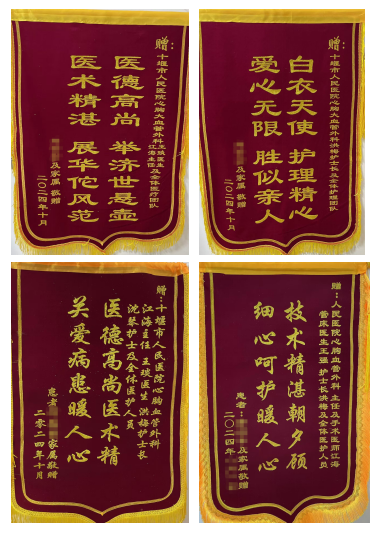 赠：
十堰市人民医院心胸大血管外科
江海主任 王琰医生及全体医疗团队
医德高尚 举济世悬壶
医术精湛 展华佗风范
及家属 敬赠
二〇二四年十月
赠：
十堰市人民医院心胸大血管外科洪梅护士长及全体护理团队
白衣天使 护理精心
爱心无限 胜似亲人
及家属 敬赠
二〇二四年十月
赠：十堰市人民医院心胸血管外科
江海主任 王琰医生 洪梅护士长
沈黎护士及全体医护人员
医德高尚医术精
关爱病患暖人心
患者
家属敬赠
二零二四年十月
赠：人民医院心胸血管外科 主任及手术医师江海
管床医生王强 护士长洪梅及全体医护人员
技术精湛朝夕顾
细心呵护暖人心
患者：
及家属敬赠
二〇二四年